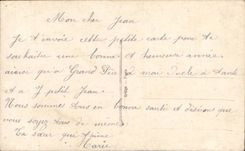 Mon cher Jean
Je t'envoie cette petite carte pour te
souhaiter une bonne et heureuse année
ainsi qu'a Grand Père
et a petit Jean
Nous sommes tous en bonne santé et désirons que
vous soyez tous de même
Ta sœur qui t'aime
Marie